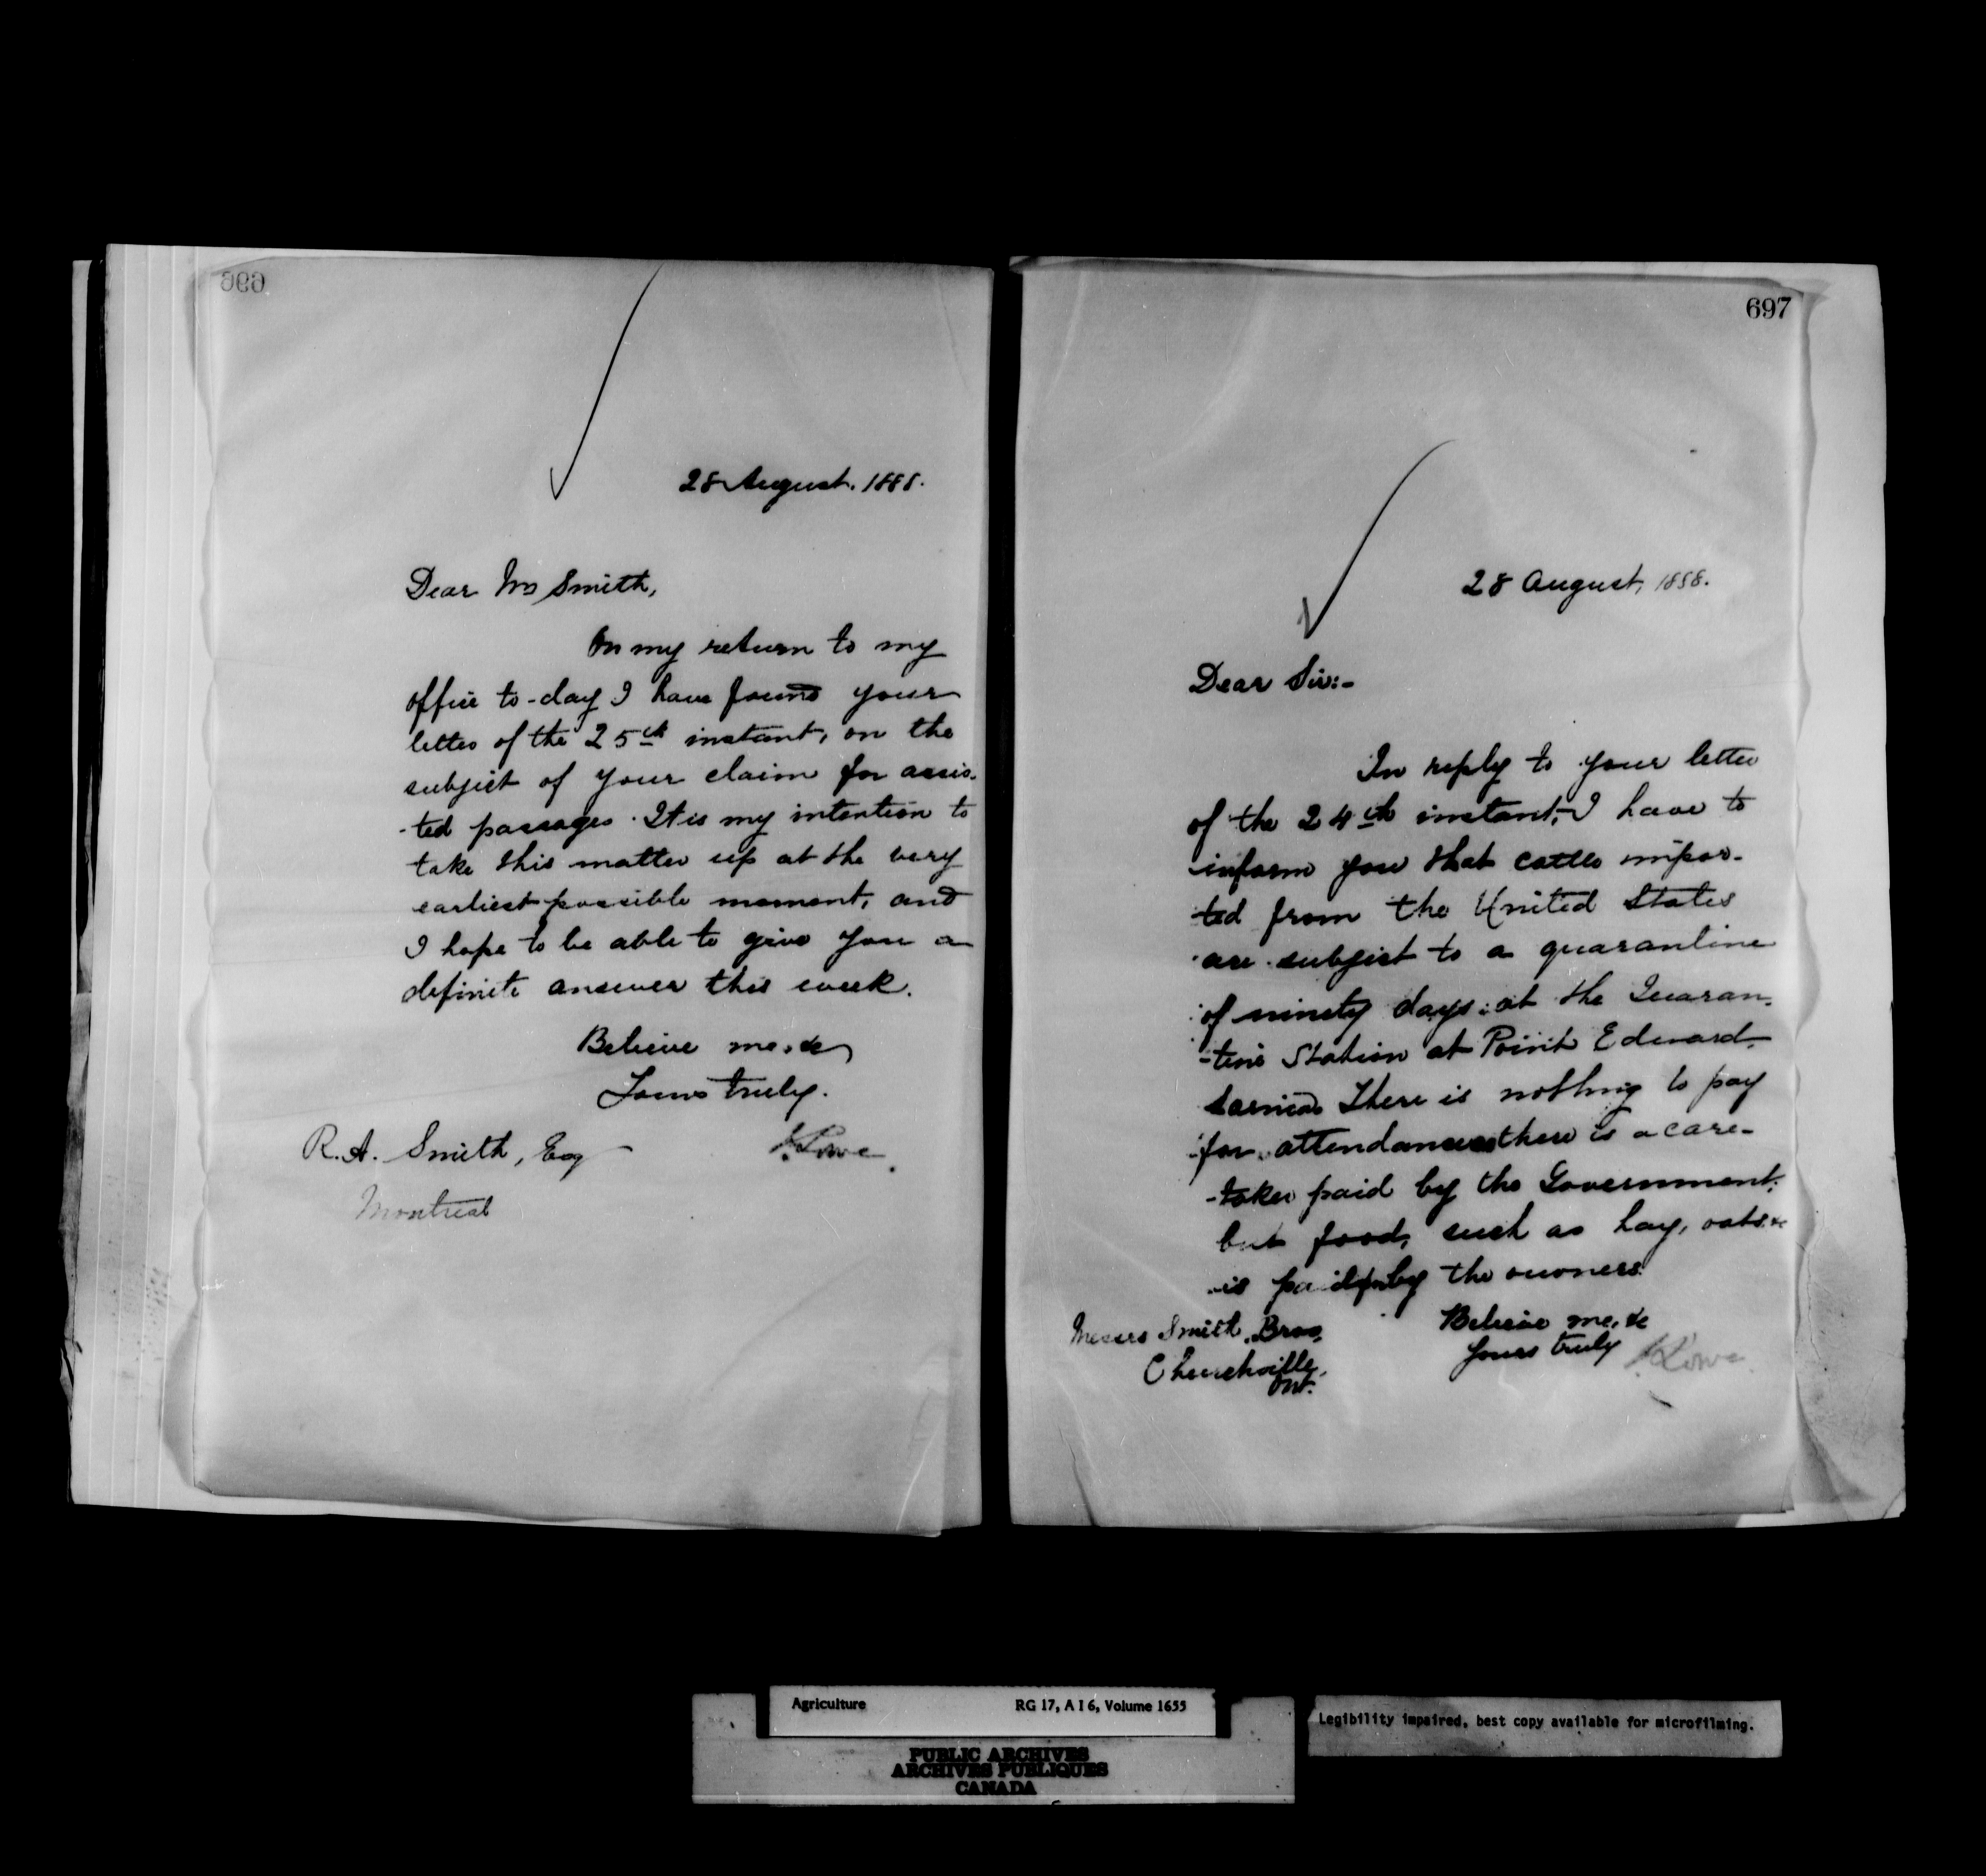 696
28 August. 1888.
Dear Mr Smith,
On my return to my
office to-day I have found your
letter of the 25th instant, on the
subject of your claim for assis-
-ted passages. It is my intention to
take this matter up at the very
earliest possible moment, and
I hope to be able to give you a
definite answer this week.
Believe me, &c
Yours truly.
J. Lowe.
R. A. Smith, Esq
Montreal
697
28 August, 1888.
Dear Sir:-
In reply to your letter
of the 24th instant, I have to
inform you that cattle impor-
ted from the United States
are subject to a quarantine
of ninety days at the Quaran-
-tine Station at Point Edward,
Sarnia. There is nothing to pay
for attendance as there is a care-
-taker paid by the Government;
but food, such as hay, oats &c
is paid for by the owners.
Believe me, &c
Yours truly
J. Lowe
Messrs Smith Bros,
Churchville,
Ont.
Agriculture RG 17, A I 6, Volume 1655
PUBLIC ARCHIVES
ARCHIVES PUBLIQUES
CANADA
Legibility impaired, best copy available for microfilming.